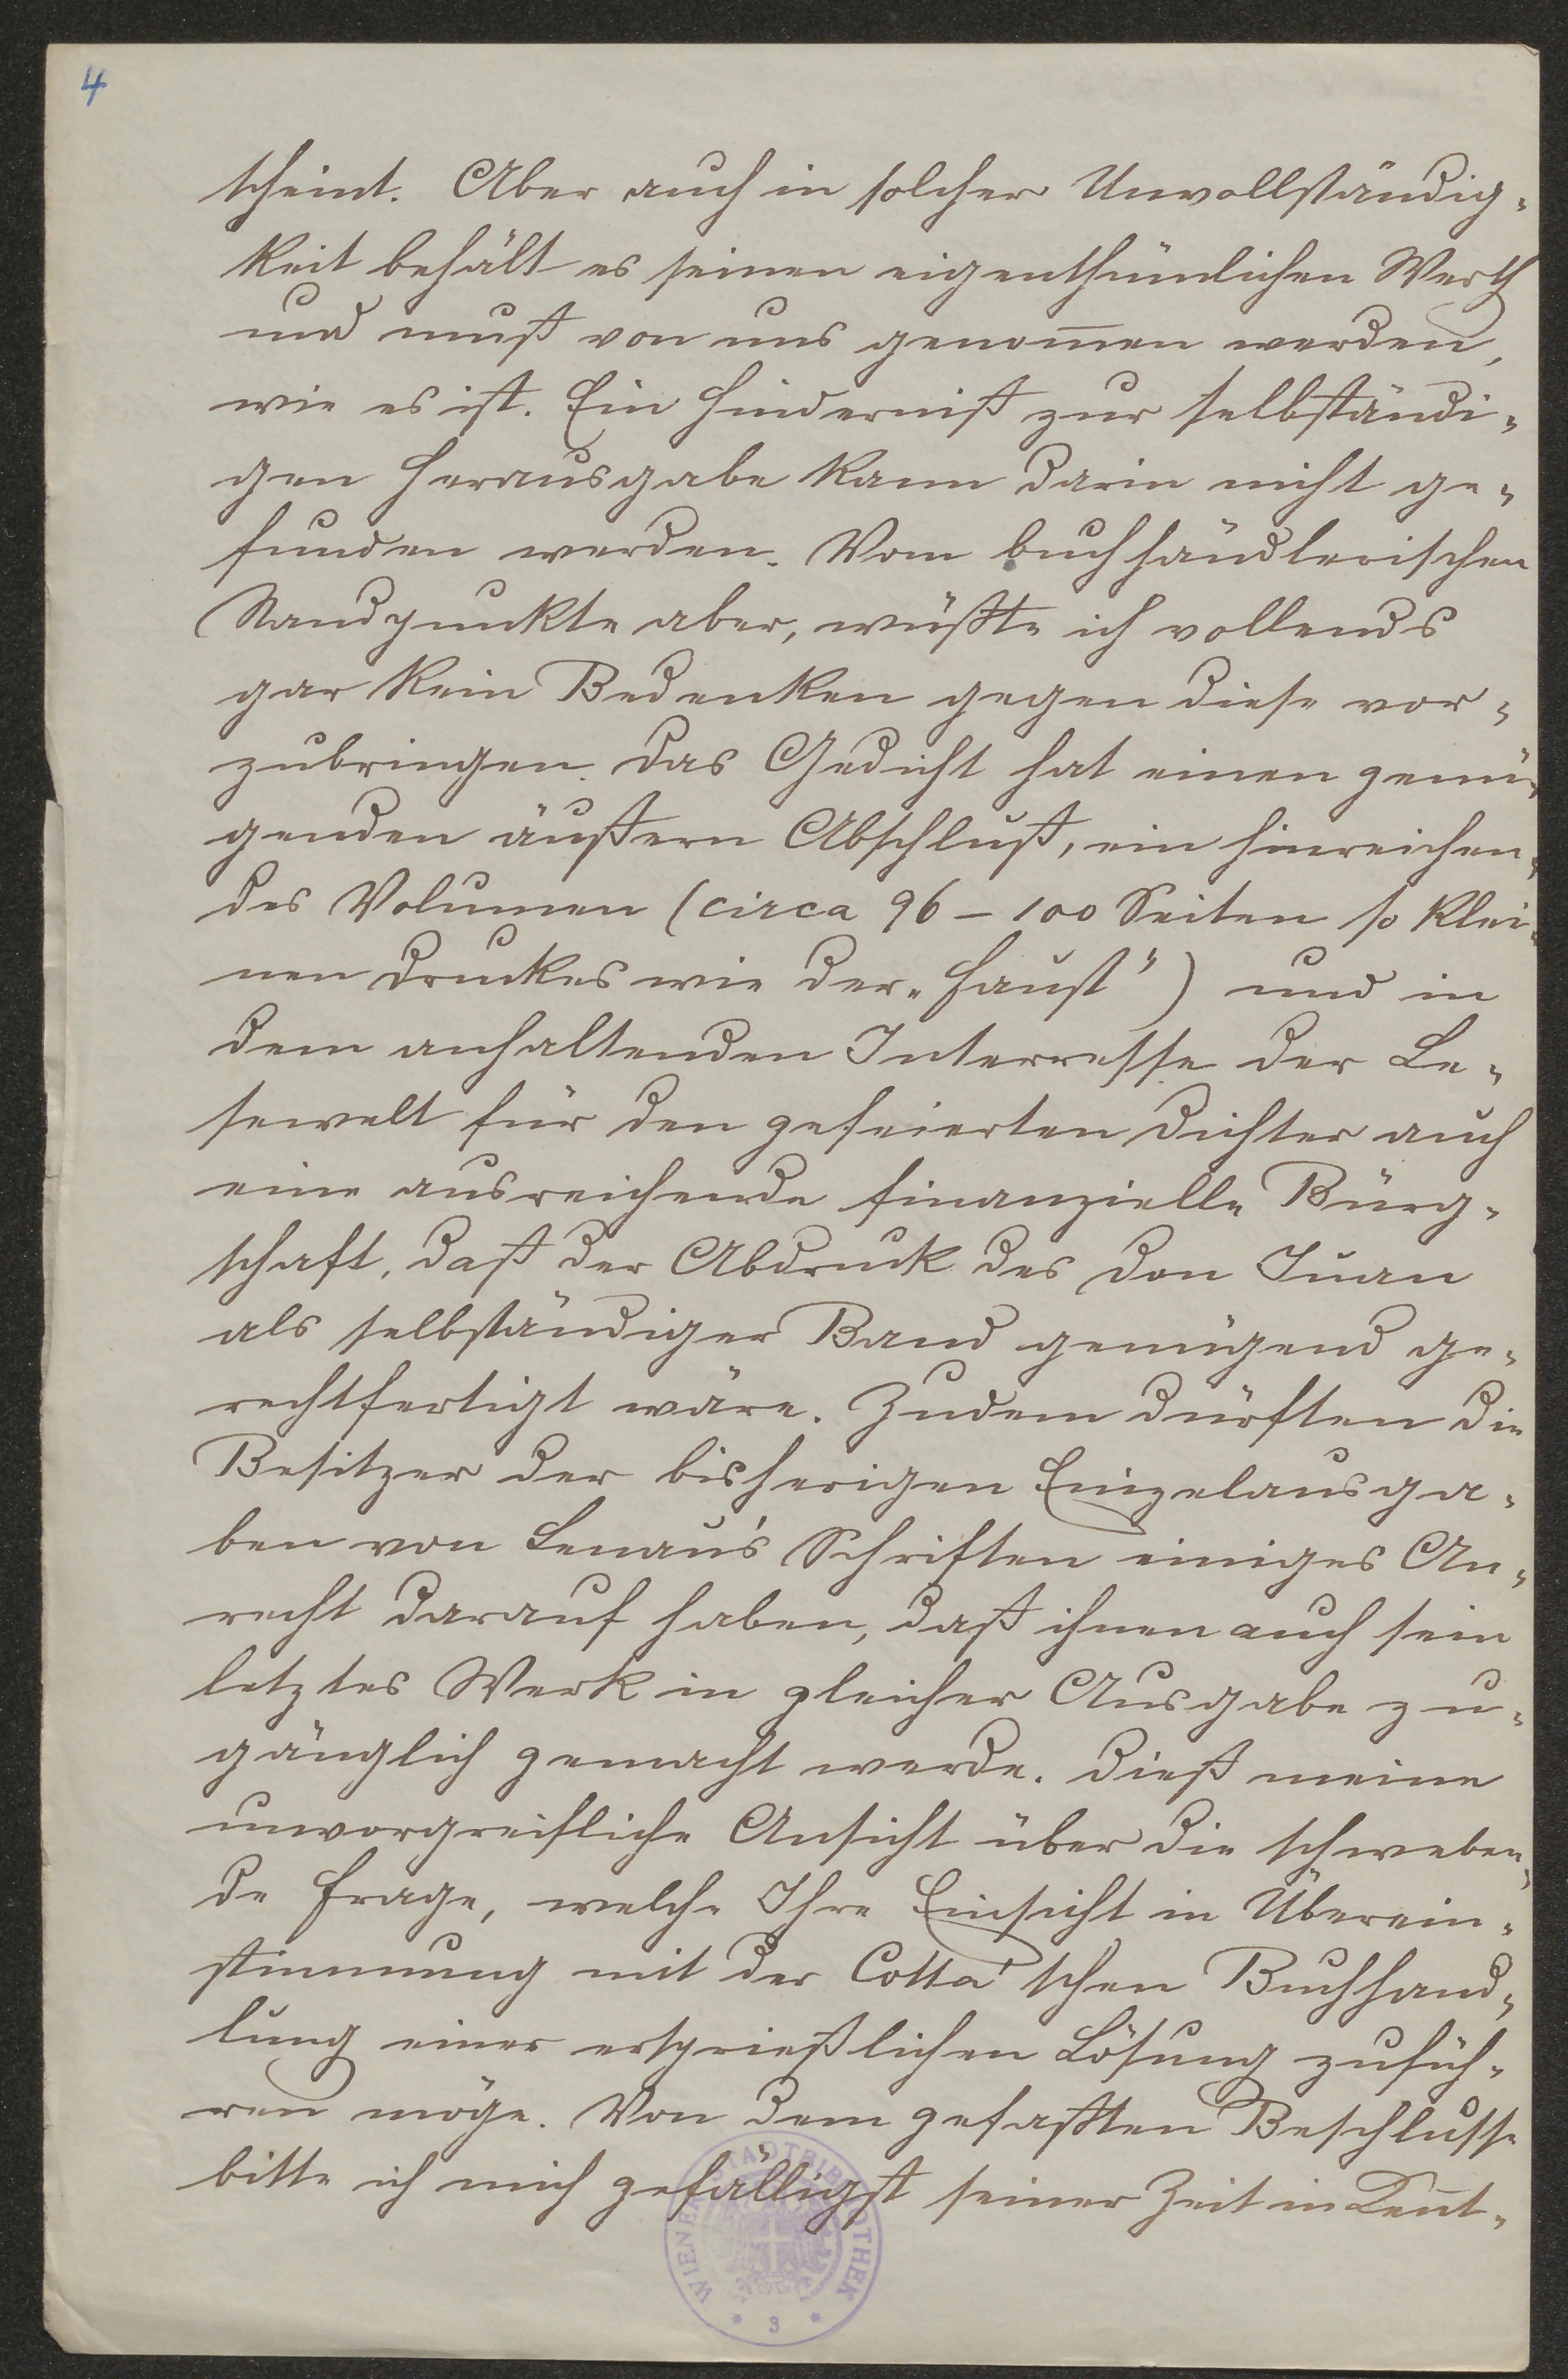 4
scheint. Aber auch in solcher Unvollständig-
keit behält es seinen eigenthümlichen Werth
und muß von uns genom̅en werden,
wie es ist. Ein Hinderniß zur selbständi-
gen Herausgabe kann darin nicht ge-
funden werden. Vom buchhändlerischen
Standpunkte aber, wüßte ich vollends
gar kein Bedenken gegen diese vor-
zubringen. Das Gedicht hat einen genü-
genden äußern Abschluß, ein hinreichen-
des Volumen (circa 96 – 100 Seiten so klei-
nen Druckes wie der „Faust") und in
dem anhaltenden Interresse der Le-
sewelt für den gefeierten Dichter auch
eine ausreichende finanzielle Bürg-
schaft, daß der Abdruck des Don Juan
als selbständiger Band genügend ge-
rechtfertigt wäre. Zudem dürften die
Besitzer der bisherigen Einzelausga-
ben von Lenau's Schriften einiges An-
recht darauf haben, daß ihnen auch sein
letztes Werk in gleicher Ausgabe zu-
gänglich gemacht werde. Dieß meine
unvorgreifliche Ansicht über die schweben-
de Frage, welche Ihre Einsicht in Überein-
stimmung mit der Cotta'schen Buchhand-
lung einer ersprießlichen Lösung zufüh-
ren möge. Von dem gefaßten Beschlusse
bitte ich mich gefälligst seiner Zeit in Ken̅t-
WIENER STADTBIBLIOTHEK
* 3 *